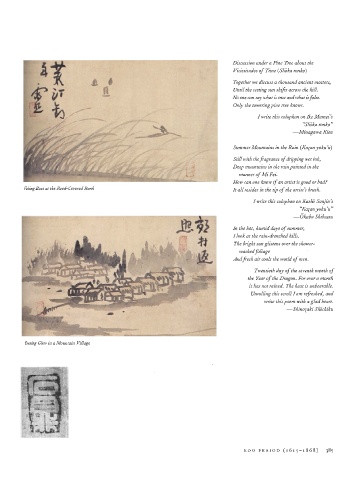 Discussion under a Pine Tree about the
Vicissitudes of Time (Shōka ronko)
Together we discuss a thousand ancient matters,
Until the setting sun shifts across the hill.
No one can say what is true and what is false.
Only the towering pine tree knows.
I write this colophon on Bu Mensei's
"Shōka ronko"
—Minagawa Kien
Summer Mountains in the Rain (Kazan yoku'u)
Still with the fragrance of dripping wet ink,
Deep mountains in the rain painted in the
manner of Mi Fei.
How can one know if an artist is good or bad?
It all resides in the tip of the artist's brush.
I write this colophon on Kushi Senjin's
"Kazan yoku'u"
In the hot, humid days of summer,
I look at the rain-drenched hills,
The bright sun glistens over the shower-
washed foliage
And fresh air cools the world of men.
Twentieth day of the seventh month of
the Year of the Dragon. For over a month
it has not rained. The heat is unbearable.
Unrolling this scroll I am refreshed, and
write this poem with a glad heart.
—Shinozaki Shōchiku
Going East at the Reed-Covered Bank
Evening Glow in a Mountain Village
EDO PERIOD (1615–1868) 385